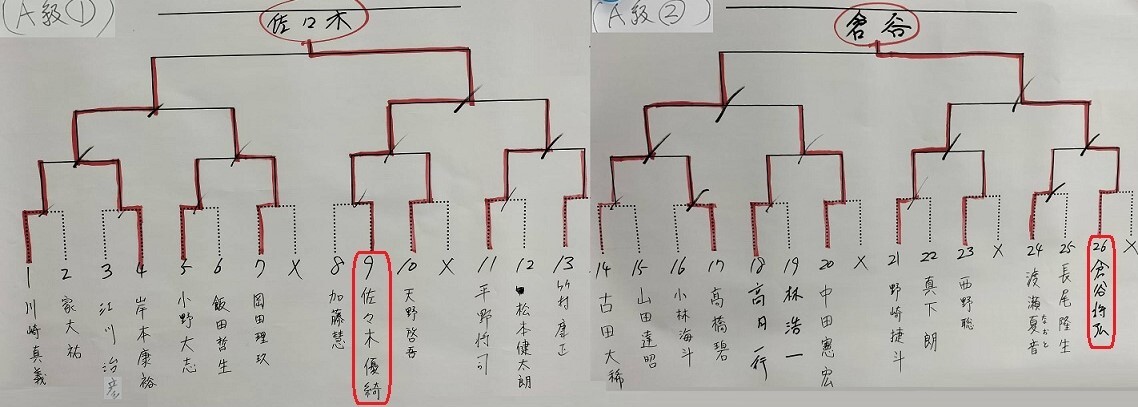 (A級①)
佐々木
1 川崎真義
2 家大祐
3 江川治彦
4 岸本康裕
5 小野大志
6 飯田哲生
7 岡田理玖
X
8 加藤慧
9 佐々木優綺
10 天野啓吾
X
11 平野将司
12 松本健太朗
13 竹村康正
(A級②)
倉谷
14 古田大稀
15 山田達昭
16 小林海斗
17 高橋碧
18 高月一行
19 林浩一
20 中田憲宏
X
21 野崎捷斗
22 真下朗
23 西野聡
X
24 渡瀬夏音 なおと
25 長尾隆生
26 倉谷
X